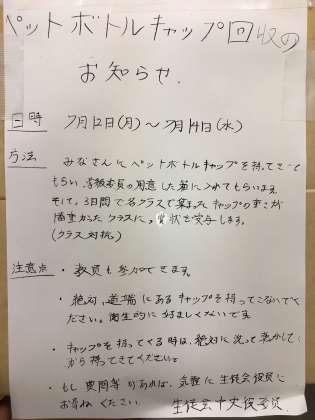 ペットボトルキャップ回収の
お知らせ.
日時 7月12日(月)〜7月14日(水)
方法 みなさんにペットボトルキャップを持ってきて
もらい、委員の用意した箱に入れてもらいます。
そして、3日間で各クラスで集まったキャップの重さが
重かったクラスに、賞状を授与します。
(クラス対抗)
注意点 ・教員も参加できます。
・絶対、道端にあるキャップを持ってこないでく
ださい。衛生的に好ましくないです
・キャップを持ってくる時は、絶対に洗って乾かして
から持ってきてください。
・もし質問等があれば、気軽に生徒会役員に
お尋ねください。 生徒会中央役員